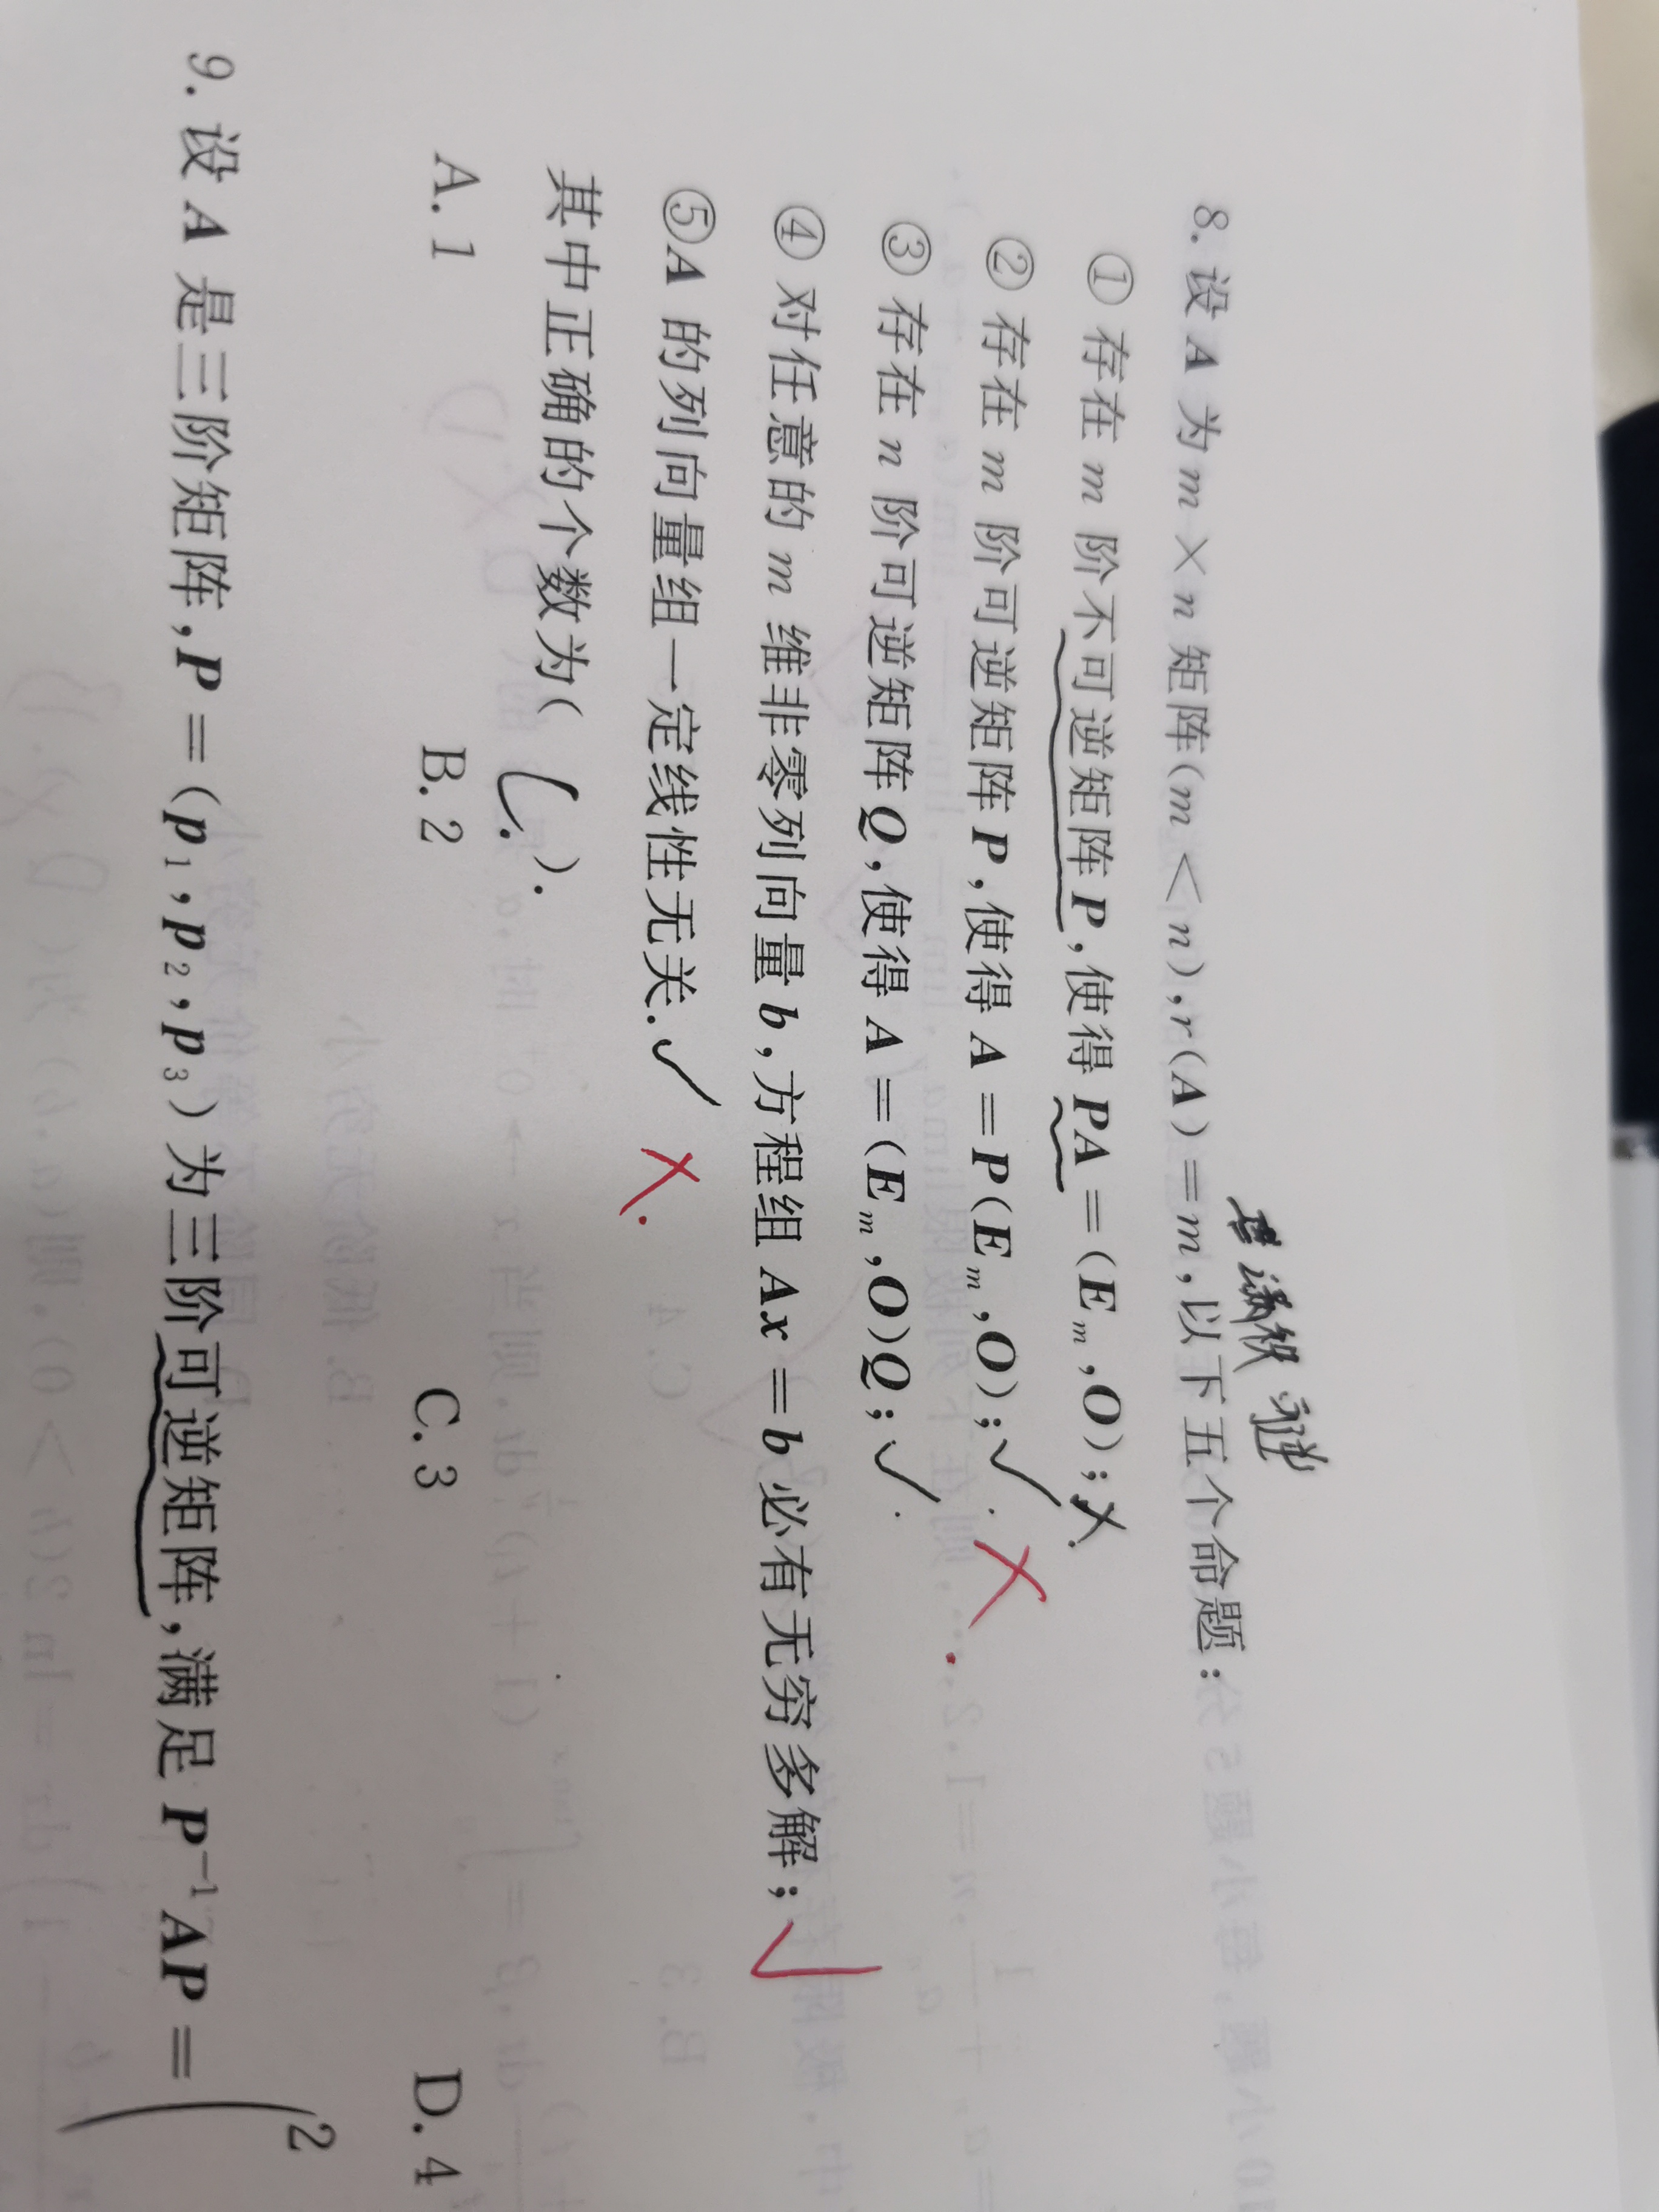 行满秩
8. 设 A 为 m × n 矩阵(m < n), r(A) = m, 以下五个命题:
① 存在 m 阶不可逆矩阵 P, 使得 PA = (Eₘ, O); ×
② 存在 m 阶可逆矩阵 P, 使得 A = P(Eₘ, O); ✓ ×
③ 存在 n 阶可逆矩阵 Q, 使得 A = (Eₘ, O)Q; ✓
④ 对任意的 m 维非零列向量 b, 方程组 Ax = b 必有无穷多解; ✓
⑤ A 的列向量组一定线性无关. ✓ ×
其中正确的个数为( C ).
A. 1 B. 2 C. 3 D. 4
9. 设 A 是三阶矩阵, P = (p₁, p₂, p₃) 为三阶可逆矩阵, 满足 P⁻¹AP = ( 2